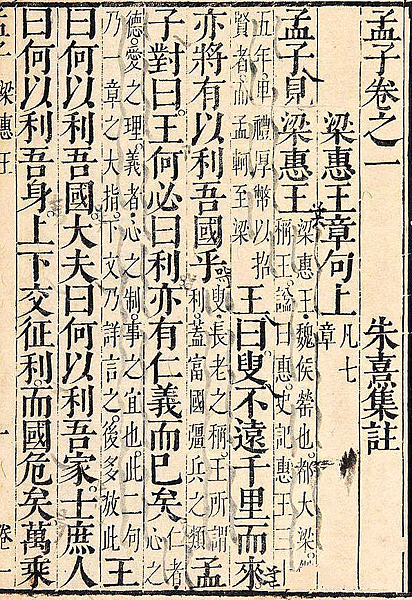 孟子卷之一 朱熹集註
梁惠王章句上 凡七章
孟子見梁惠王 梁惠王魏侯罃也都大梁
稱王謚曰惠史記惠王三
五年卑禮厚幣以招
賢者而孟軻至梁 王曰叟不遠千里而來
亦將有以利吾國乎 叟長老之稱王所謂
利蓋富國彊兵之類 孟
子對曰王何必曰利亦有仁義而已矣 仁者
心之
德愛之理義者心之制事之宜也此二句
乃一章之大指下文乃詳言之後多放此 王
曰何以利吾國大夫曰何以利吾家士庶人
曰何以利吾身上下交征利而國危矣萬乘
孟子 梁惠王 一 卷一